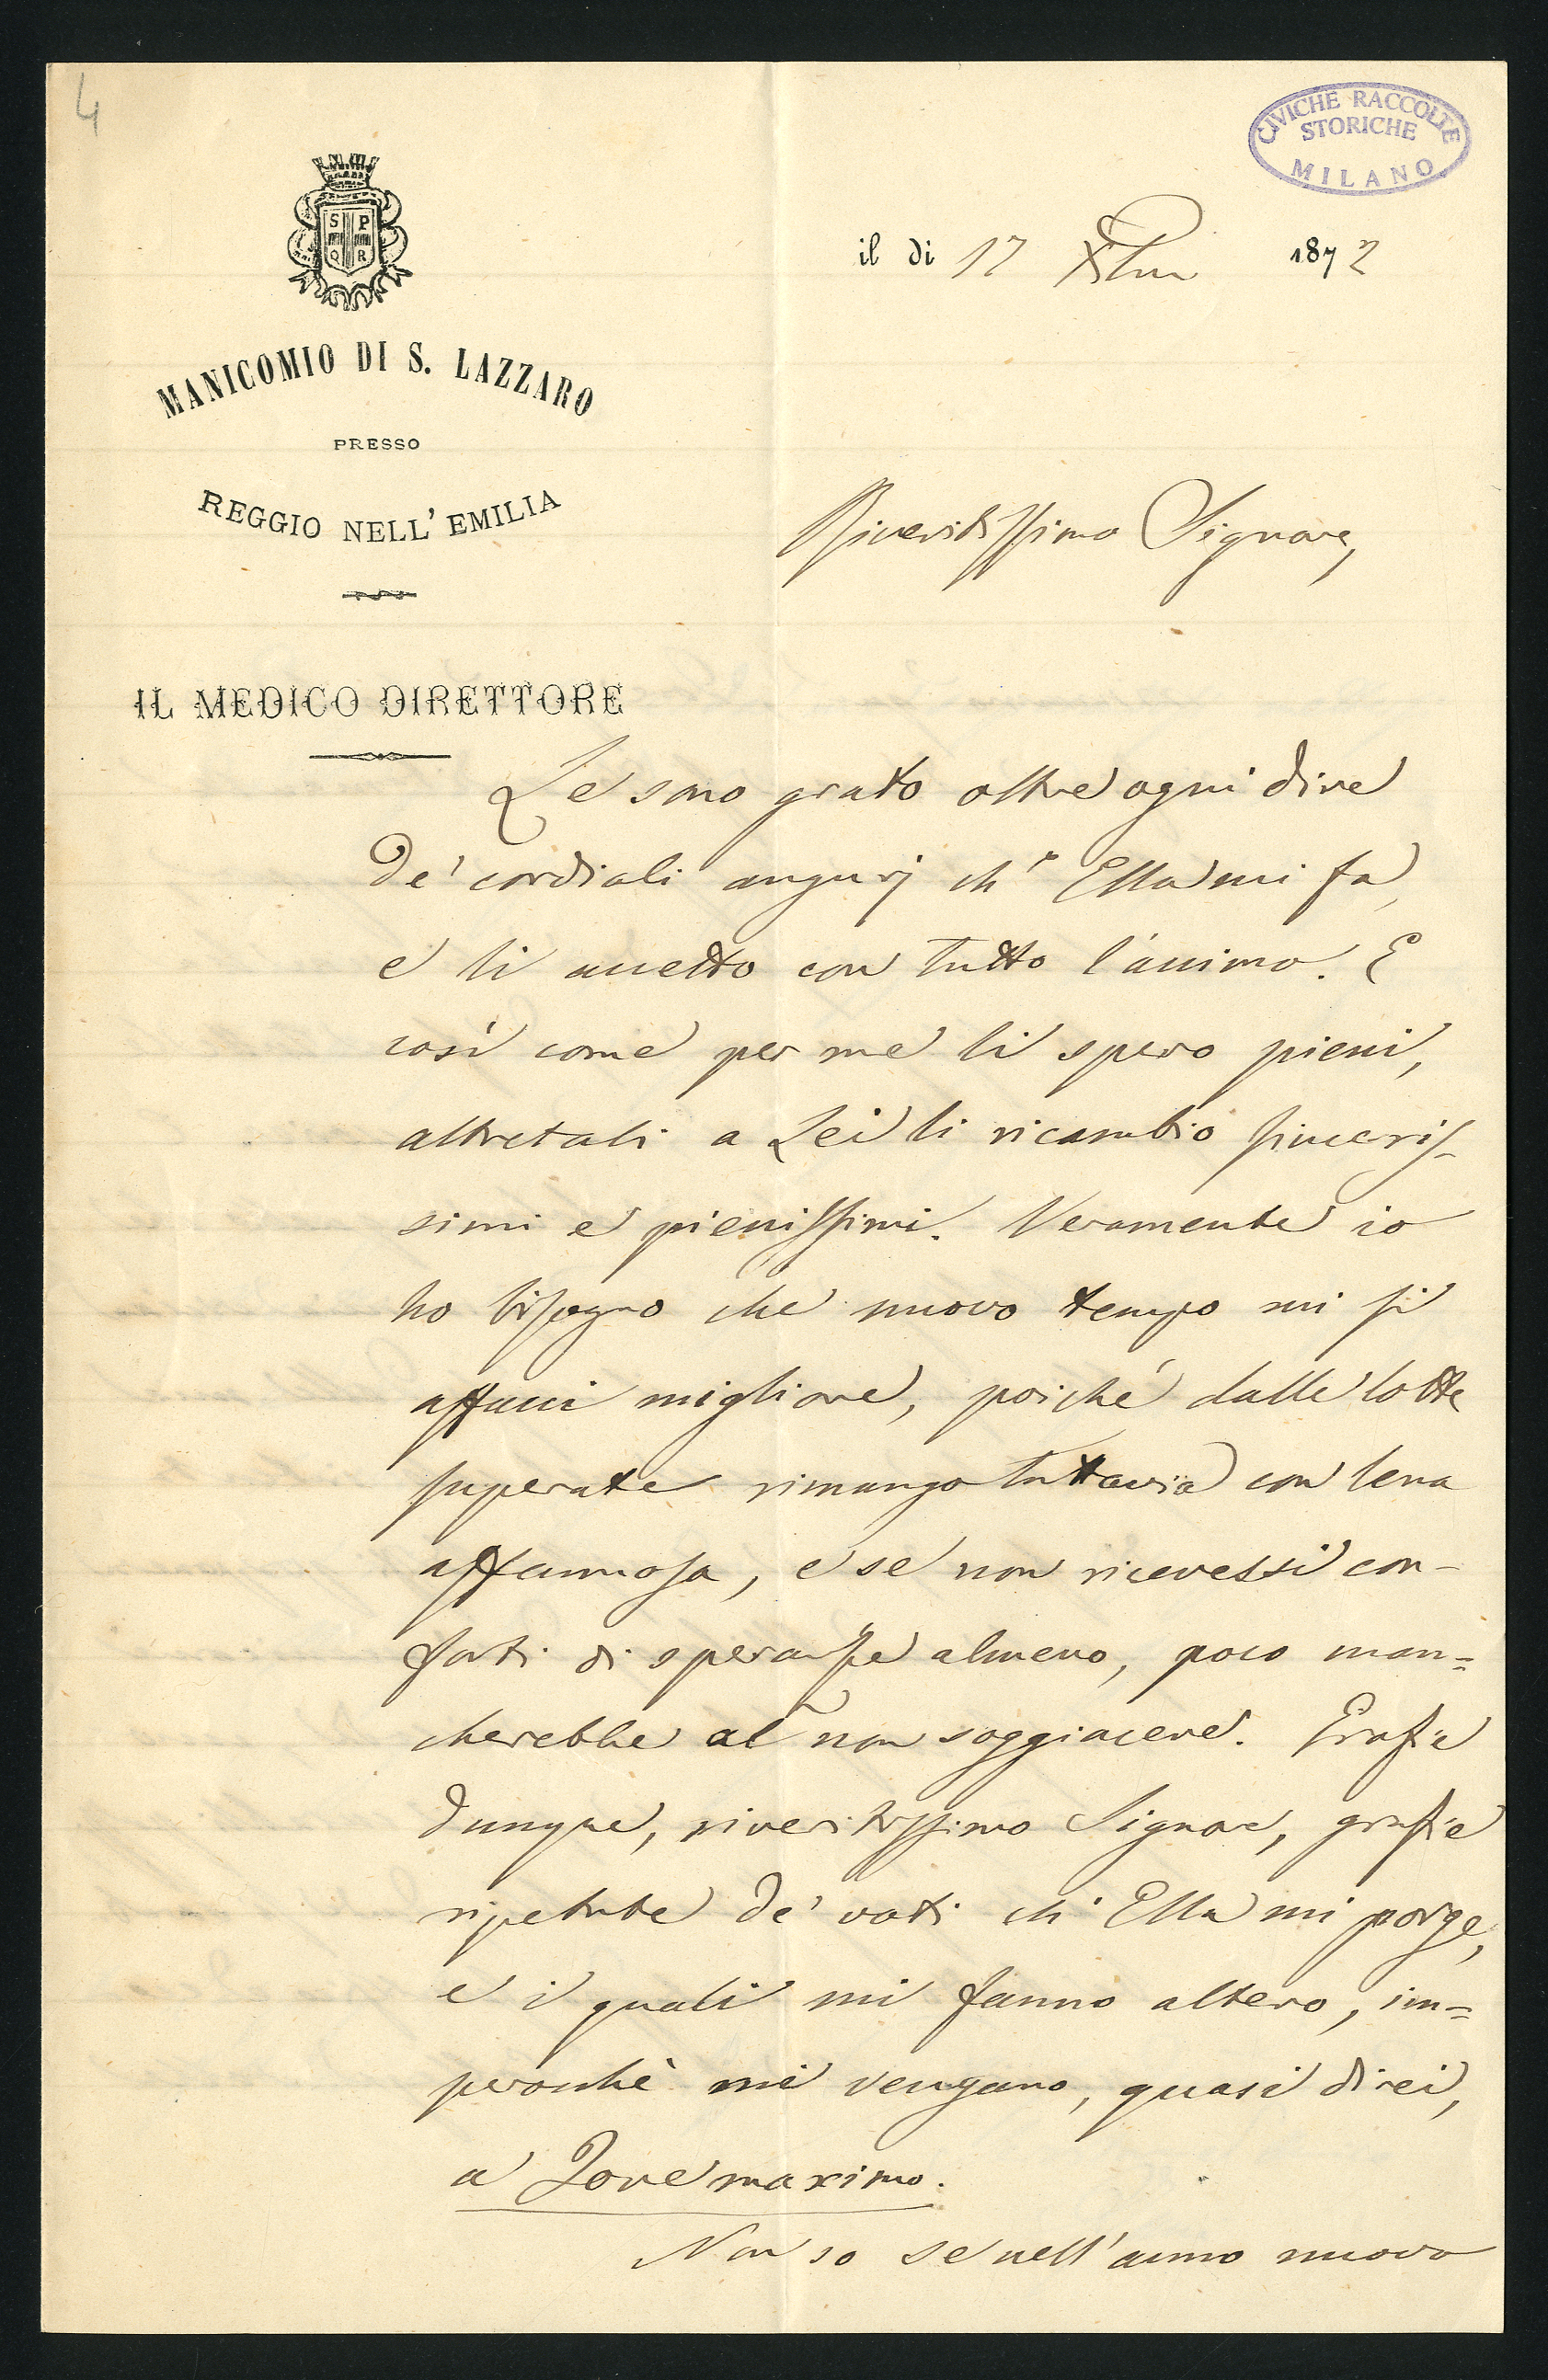 4
CIVICHE RACCOLTE
STORICHE
MILANO
S P
Q R
il dì 17 Xbre 1872
MANICOMIO DI S. LAZZARO
PRESSO
REGGIO NELL' EMILIA
Riveritissimo Signore,
IL MEDICO DIRETTORE
Le sono grato oltre ogni dire
de' cordiali augurj ch' Ella mi fa,
e li accetto con tutto l'animo. E
così come per me li spero pieni,
altretali a Lei li ricambio sinceris-
simi e pienissimi. Veramente io
ho bisogno che nuovo tempo mi si
affacci migliore, poiché dalle lotte
superate rimango tuttavia con lena
affannosa, e se non ricevessi con-
forti di speranze almeno, poco man=
cherebbe al non soggiacere. Grazie
dunque, riveritissimo Signore, grazie
ripetute de' voti ch' Ella mi porge,
e i quali mi fanno altero, im=
perocchè mi vengano, quasi direi,
a Jove maximo.
Non so se nell'anno nuovo